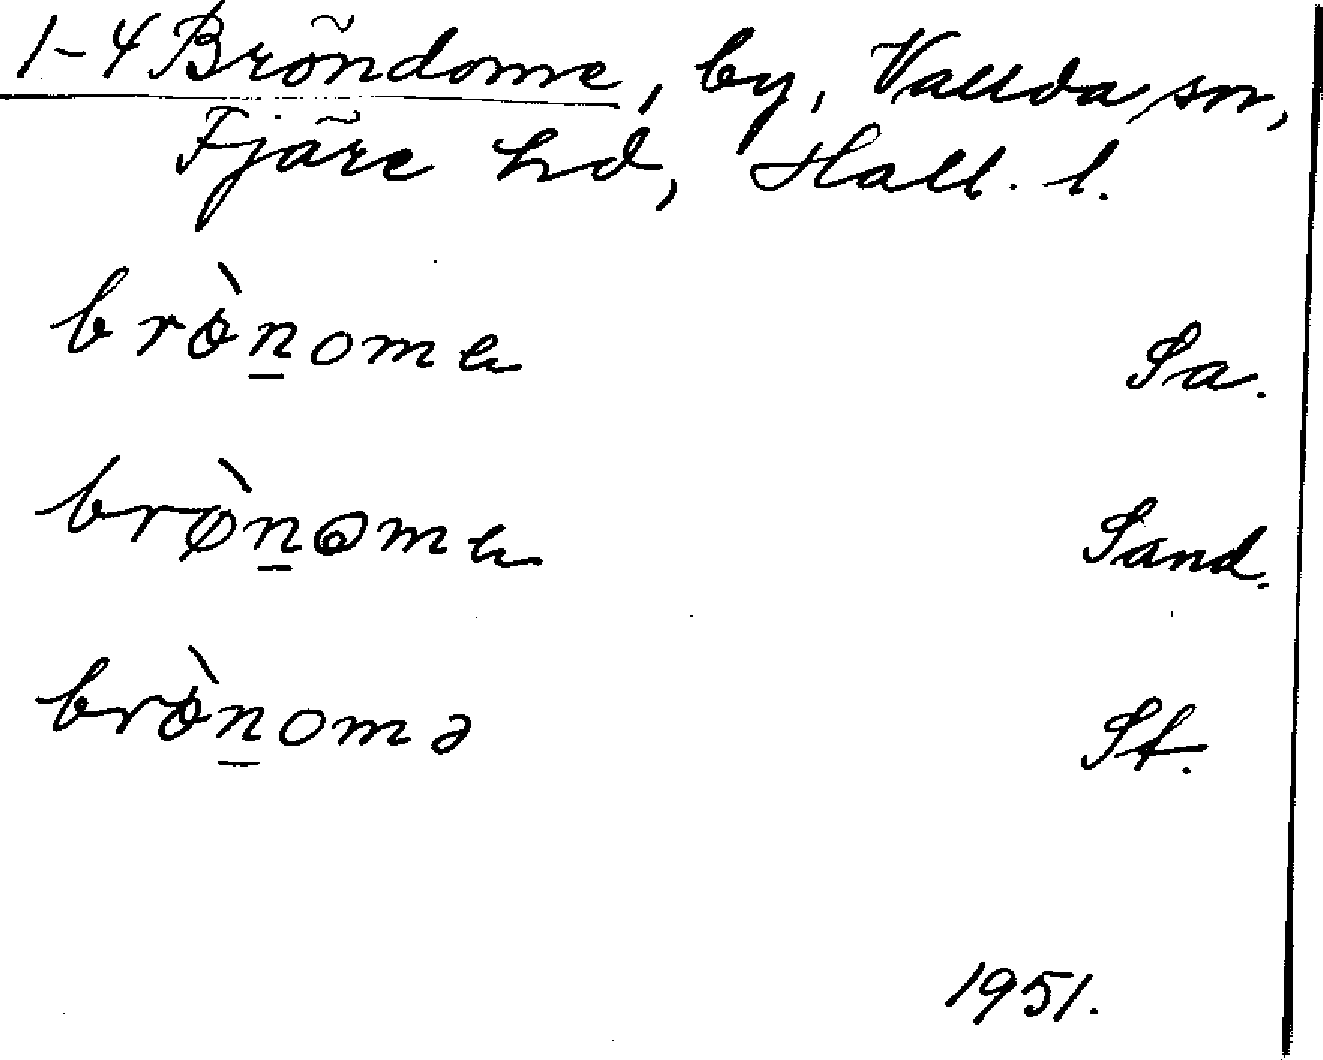 1-4 Bröndome, by, Vallda sn,
Fjäre hd, Hall. l.
brø̀n̲omε Sa.
brø̀n̲ɷmε Sand.
brø̀n̲omə St.
1951.